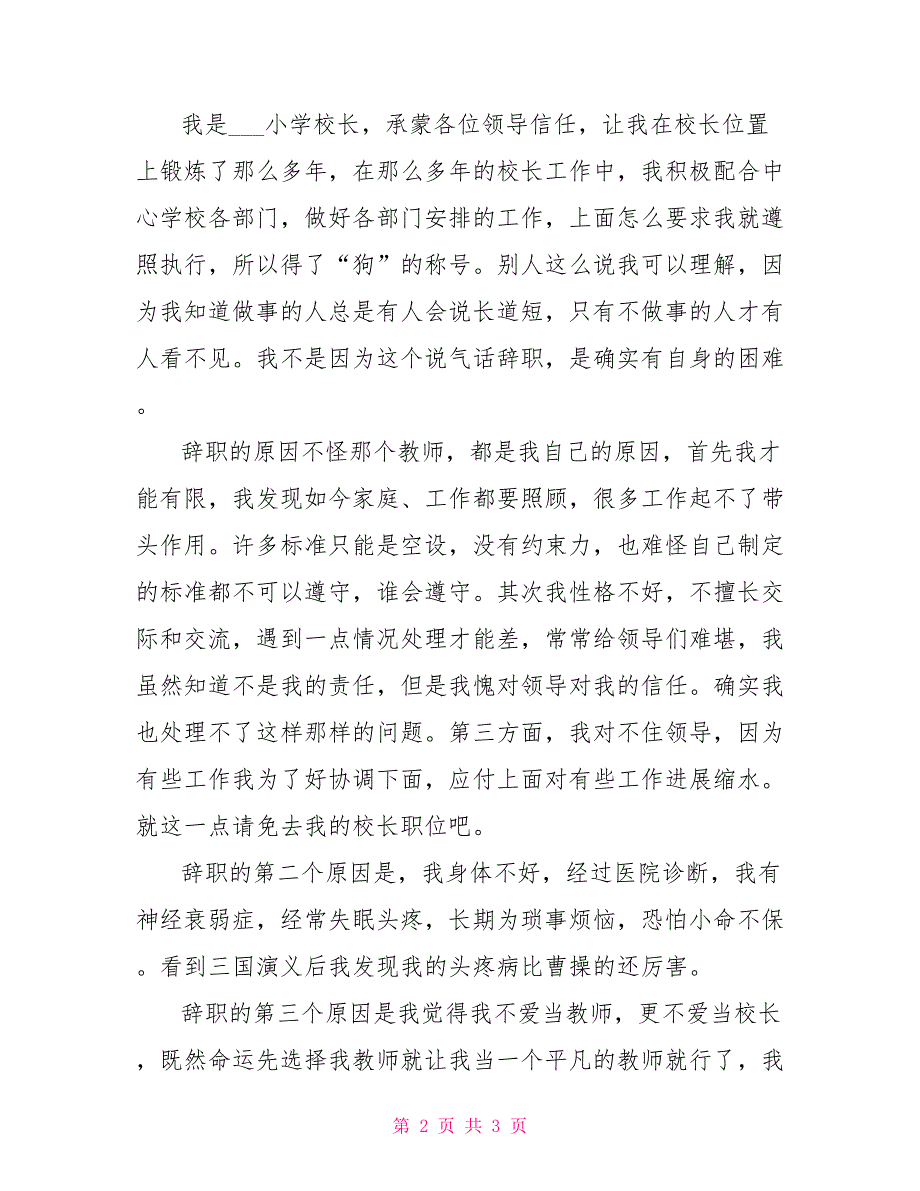 我是___小学校长，承蒙各位领导信任，让我在校长位置
上锻炼了那么多年，在那么多年的校长工作中，我积极配合中
心学校各部门，做好各部门安排的工作，上面怎么要求我就遵
照执行，所以得了“狗”的称号。别人这么说我可以理解，因
为我知道做事的人总是有人会说长道短，只有不做事的人才有
人看不见。我不是因为这个说气话辞职，是确实有自身的困难
。
辞职的原因不怪那个教师，都是我自己的原因，首先我才
能有限，我发现如今家庭、工作都要照顾，很多工作起不了带
头作用。许多标准只能是空设，没有约束力，也难怪自己制定
的标准都不可以遵守，谁会遵守。其次我性格不好，不擅长交
际和交流，遇到一点情况处理才能差，常常给领导们难堪，我
虽然知道不是我的责任，但是我愧对领导对我的信任。确实我
也处理不了这样那样的问题。第三方面，我对不住领导，因为
有些工作我为了好协调下面，应付上面对有些工作进展缩水。
就这一点请免去我的校长职位吧。
辞职的第二个原因是，我身体不好，经过医院诊断，我有
神经衰弱症，经常失眠头疼，长期为琐事烦恼，恐怕小命不保
。看到三国演义后我发现我的头疼病比曹操的还厉害。
辞职的第三个原因是我觉得我不爱当教师，更不爱当校长
，既然命运先选择我教师就让我当一个平凡的教师就行了，我
第 2 页 共 3 页